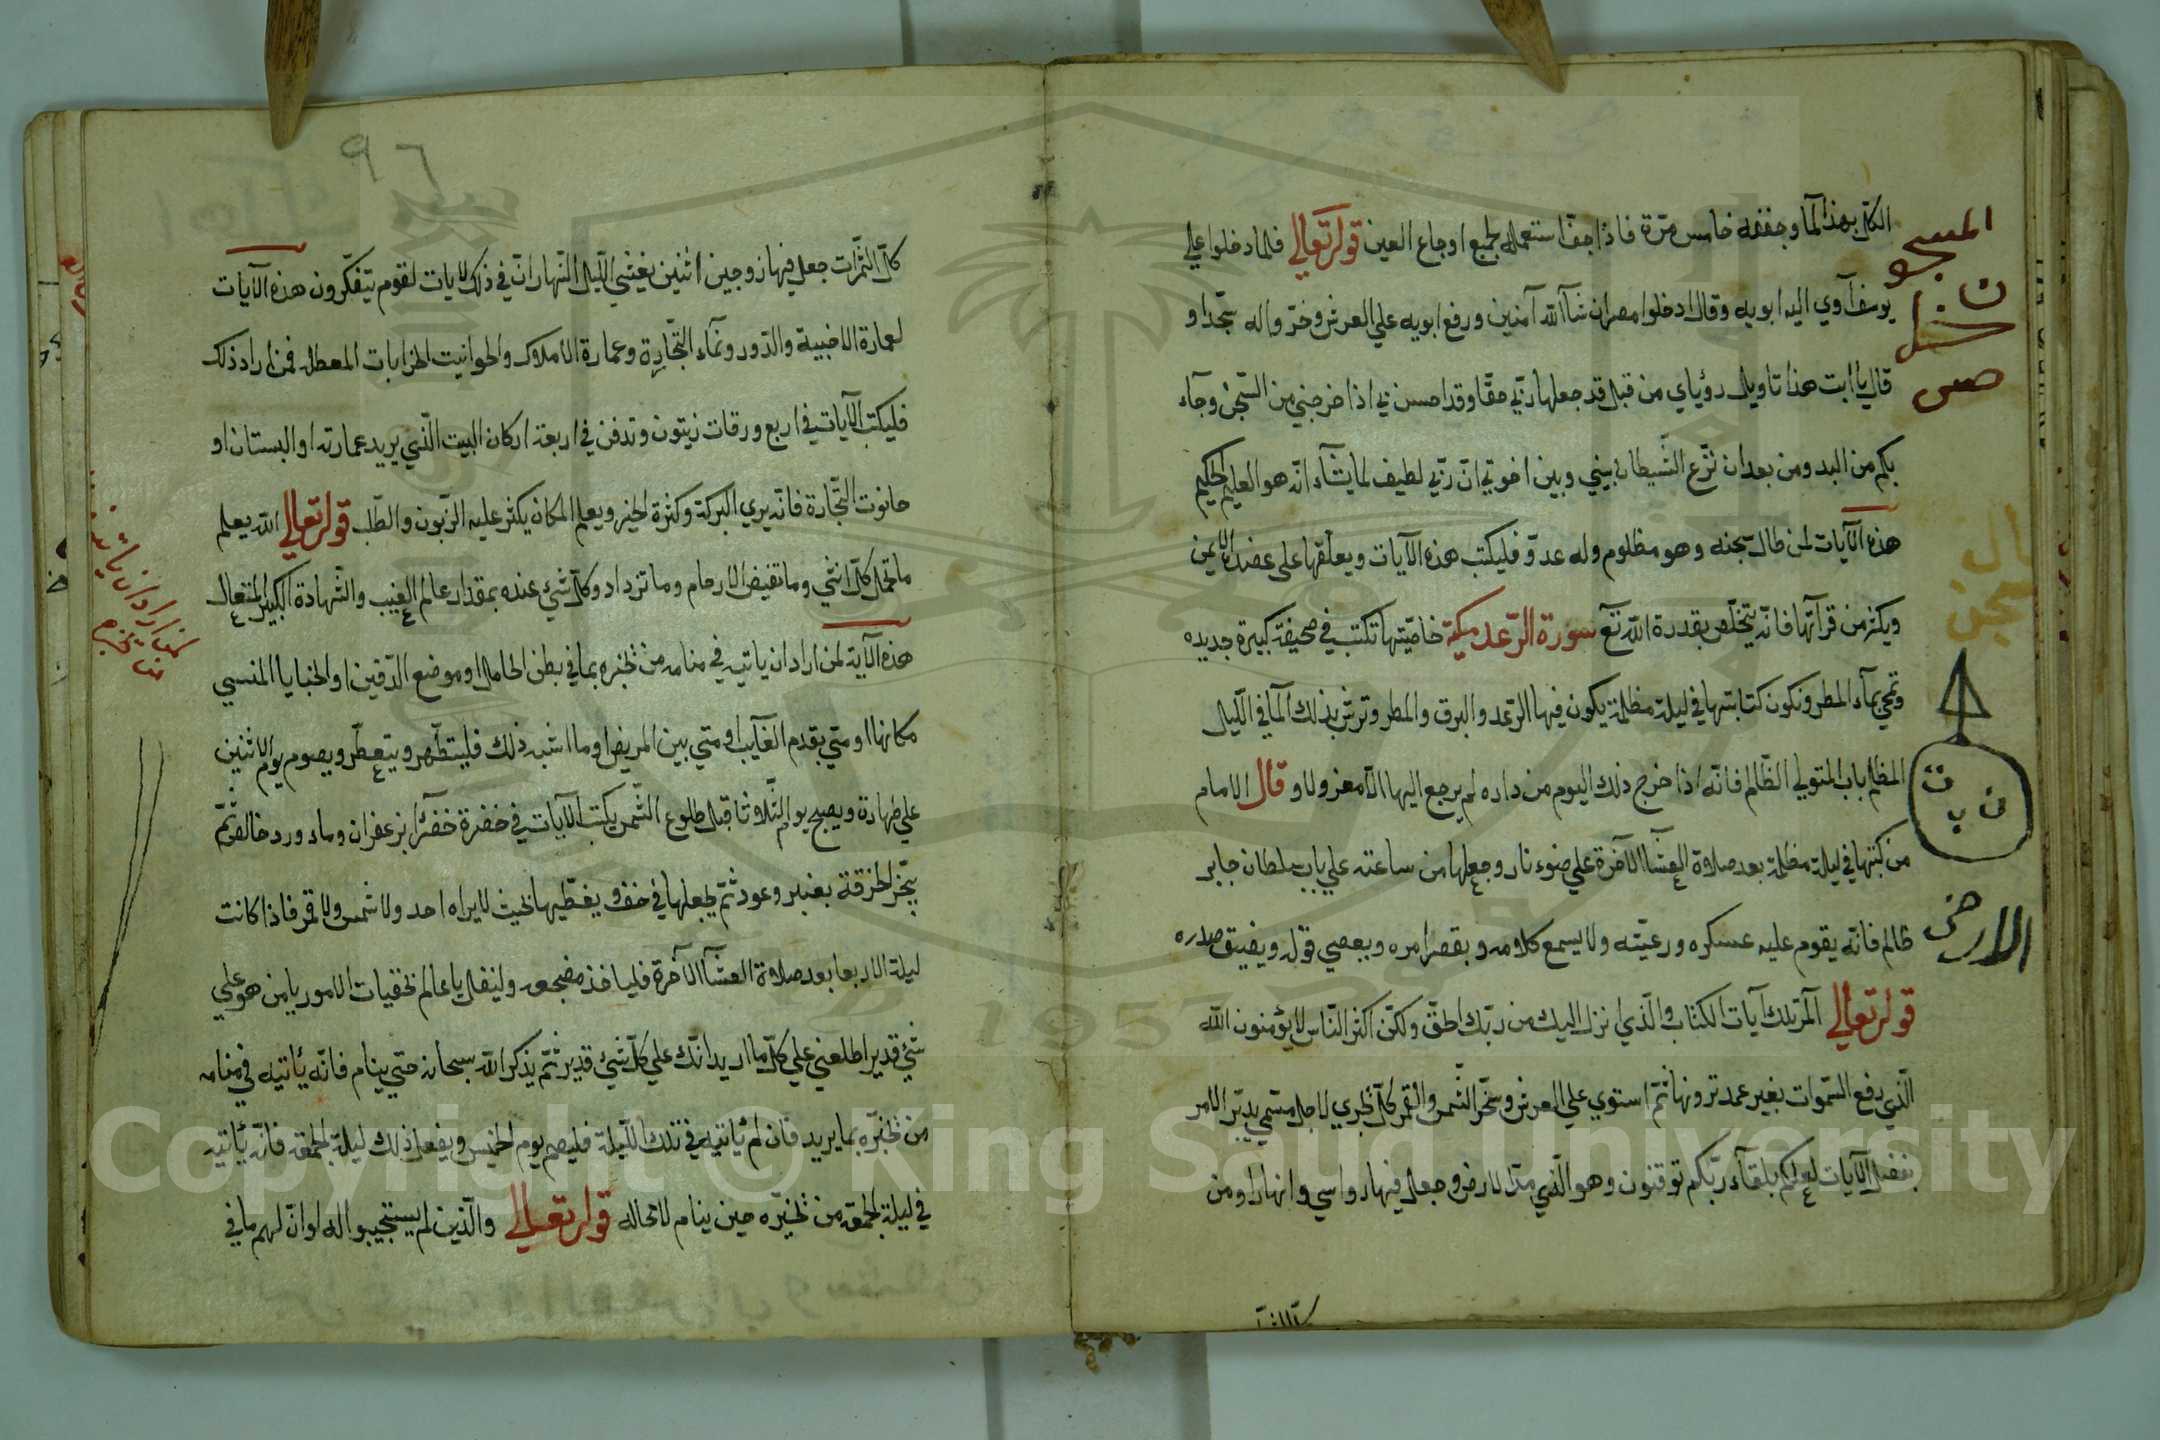 الكل بهذا الما وجففه خامس مرة فاذا جفا استعمله لجميع اوجاع العين قوله تعالي فلما دخلوا علي
يوسف آوي اليه ابويه وقال ادخلوا مصر ان شآ الله آمنين ورفع ابويه علي العرش وخروا له سجدا و
قال يا ابت هذا تاويل رؤياي من قبل قد جعلها ربي حقا وقد احسن بي اذا خرجني من السجن وجآء
بكم من البدو من بعد ان نزع الشيطان بيني وبين اخوتي ان ربي لطيف لما يشآء انه هو العليم الحكيم
هذه الآيات لمن طال سجنه وهو مظلوم وله عدو فليكتب هذه الآيات ويعلقها على عضده الايمن
ويكثر من قرآتها فانه يتخلص بقدرة الله تع سورة الرعد مكية خاصيتها تكتب في صحيفة كبيرة جديده
وتمحي بمآء المطر وتكون كتابتها في ليلة مظلمة يكون فيها الرعد والبرق والمطر وترش بذلك المآ في الليل
المظلم باب المتولي الظالم فانه اذا خرج ذلك اليوم من داره لم يرجع اليها الا معزولا و قال الامام
من كتبها في ليلة مظلمة بعد صلاة العشآ الآخرة علي ضوء نار وجعلها من ساعته علي باب سلطان جابر
ظالم فانه يقوم عليه عسكره ورعيته ولا يسمع كلامه و يقصر امره ويعصي قوله ويضيق صدره
قوله تعالي المر تلك آيات الكتاب والذي انزل اليك من ربك الحق ولكن اكثر الناس لا يؤمنون الله
الذي رفع السموات بغير عمد ترونها ثم استوي علي العرش وسخر الشمس والقمر كل يجري لاجل مسمي يدبر الامر
يفصل الآيات لعلكم بلقآء ربكم توقنون وهو الذي مد الارض وجعل فيها رواسي وانهارا ومن
المسجو
ن
الارض
٩٦
كل الثمرات جعل فيها زوجين اثنين يغشي الليل النهار ان في ذلك لايات لقوم يتفكرون هذه الآيات
لعمارة الاخبية والدور ونمآء التجارة وعمارة الاملاك والحوانيت الخرابات المعطله فمن اراد ذلك
فليكتب الآيات في اربع ورقات زيتون وتدفن في اربعة اركان البيت الذي يريد عمارته او البستان او
حانوت التجارة فانه يري البركة وكثرة الخير ويعلم المكان يكثر عليه الزبون والطلب قوله تعالي الله يعلم
ما تحمل كل انثي وما تغيض الارحام وما تزداد وكل شيء عنده بمقدار عالم الغيب والشهادة الكبير المتعال
هذه الآية لمن اراد ان ياتيه في منامه من يخبره بما في بطن الحامل او موضع الدفين او الخبايا المنسي
مكانها او متي يقدم الغايب او متي يبين المريض او ما اشبه ذلك فليتطهر ويتعطر ويصوم يوم الاثنين
علي طهارة ويصبح يوم الثلاوثا قبل طلوع الشمس يكتب الآيات في خضرة خضرآء بزعفران وماء ورد خالص ثم
يبخر الخزقة بعنبر وعود ثم يجعلها في خف ويغطيها بحيث لا يراه احد ولا شمس ولا قمر فاذا كانت
ليلة الاربعا بعد صلاة العشآ الآخرة فليا خذ مضجعه وليقل يا عالم الخفيات الامور يا من هو علي
شئ قدير اطلعني علي كل ما اريد انك علي كل شئ قدير ثم يذكر الله سبحانه حتي ينام فانه يأتيه في منامه
من يخبره بما يريد فان لم يأتيه في تلك الليلة فليصم يوم الخميس ويفعل ذلك ليلة الجمعه فانه يأتيه
في ليلة الجمعه من يخبره حين ينام لا محاله قوله تعالي والذين لم يستجيبوا له لو ان لهم ما في
لمن اراد ان ياتيه
من يخبره
Copyright © King Saud University
1957